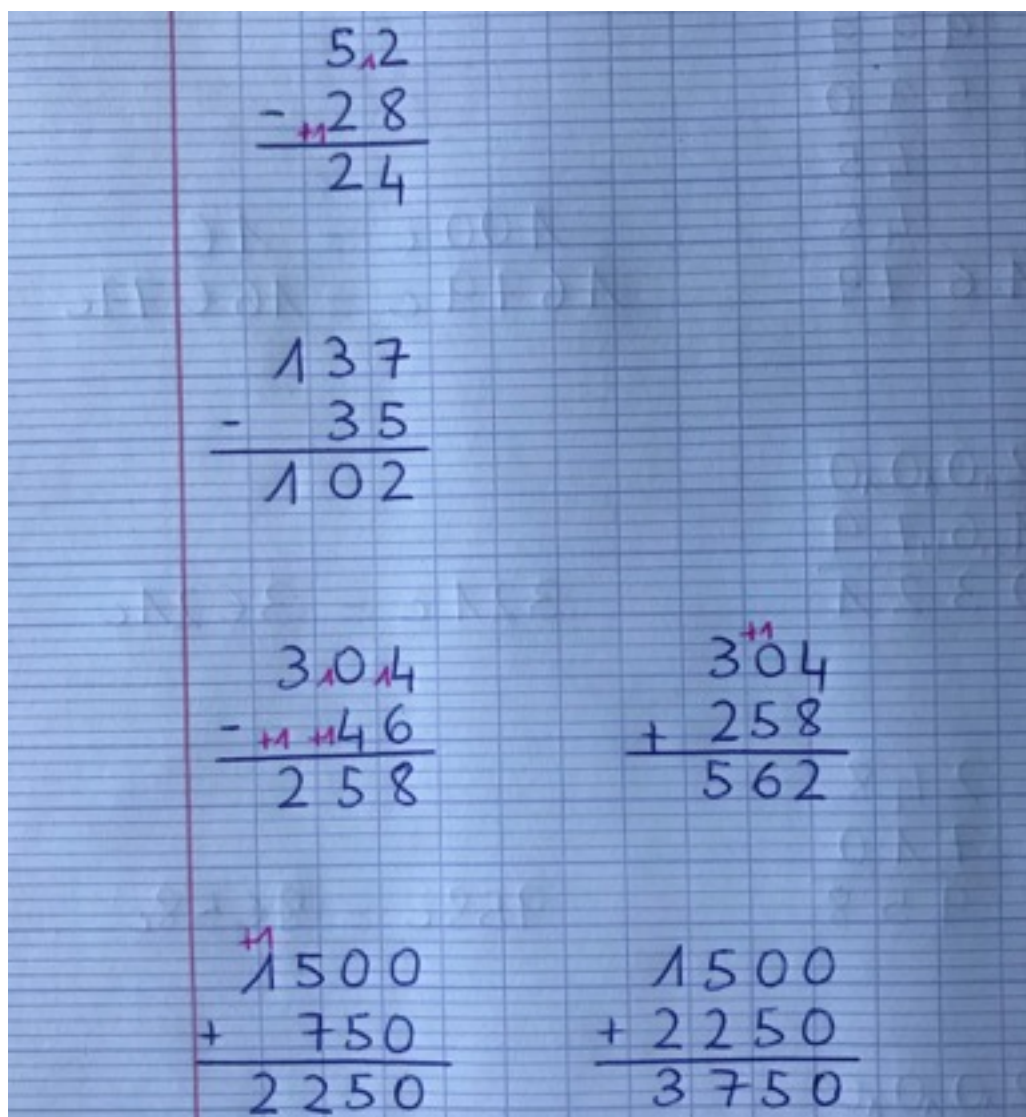 5 12
- +1 2 8
2 4
1 3 7
- 3 5
1 0 2
3 10 14
- +1 +1 4 6
2 5 8
+1
3 0 4
+ 2 5 8
5 6 2
+1
1 5 0 0
+ 7 5 0
2 2 5 0
1 5 0 0
+ 2 2 5 0
3 7 5 0